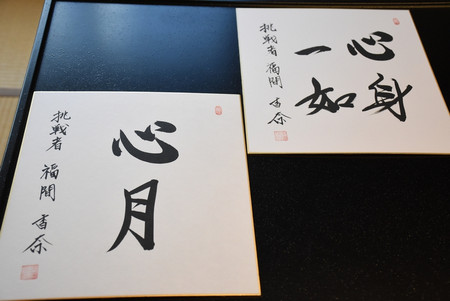 心身
一如
挑戦者 福間 香奈
心月
挑戦者 福間 香奈